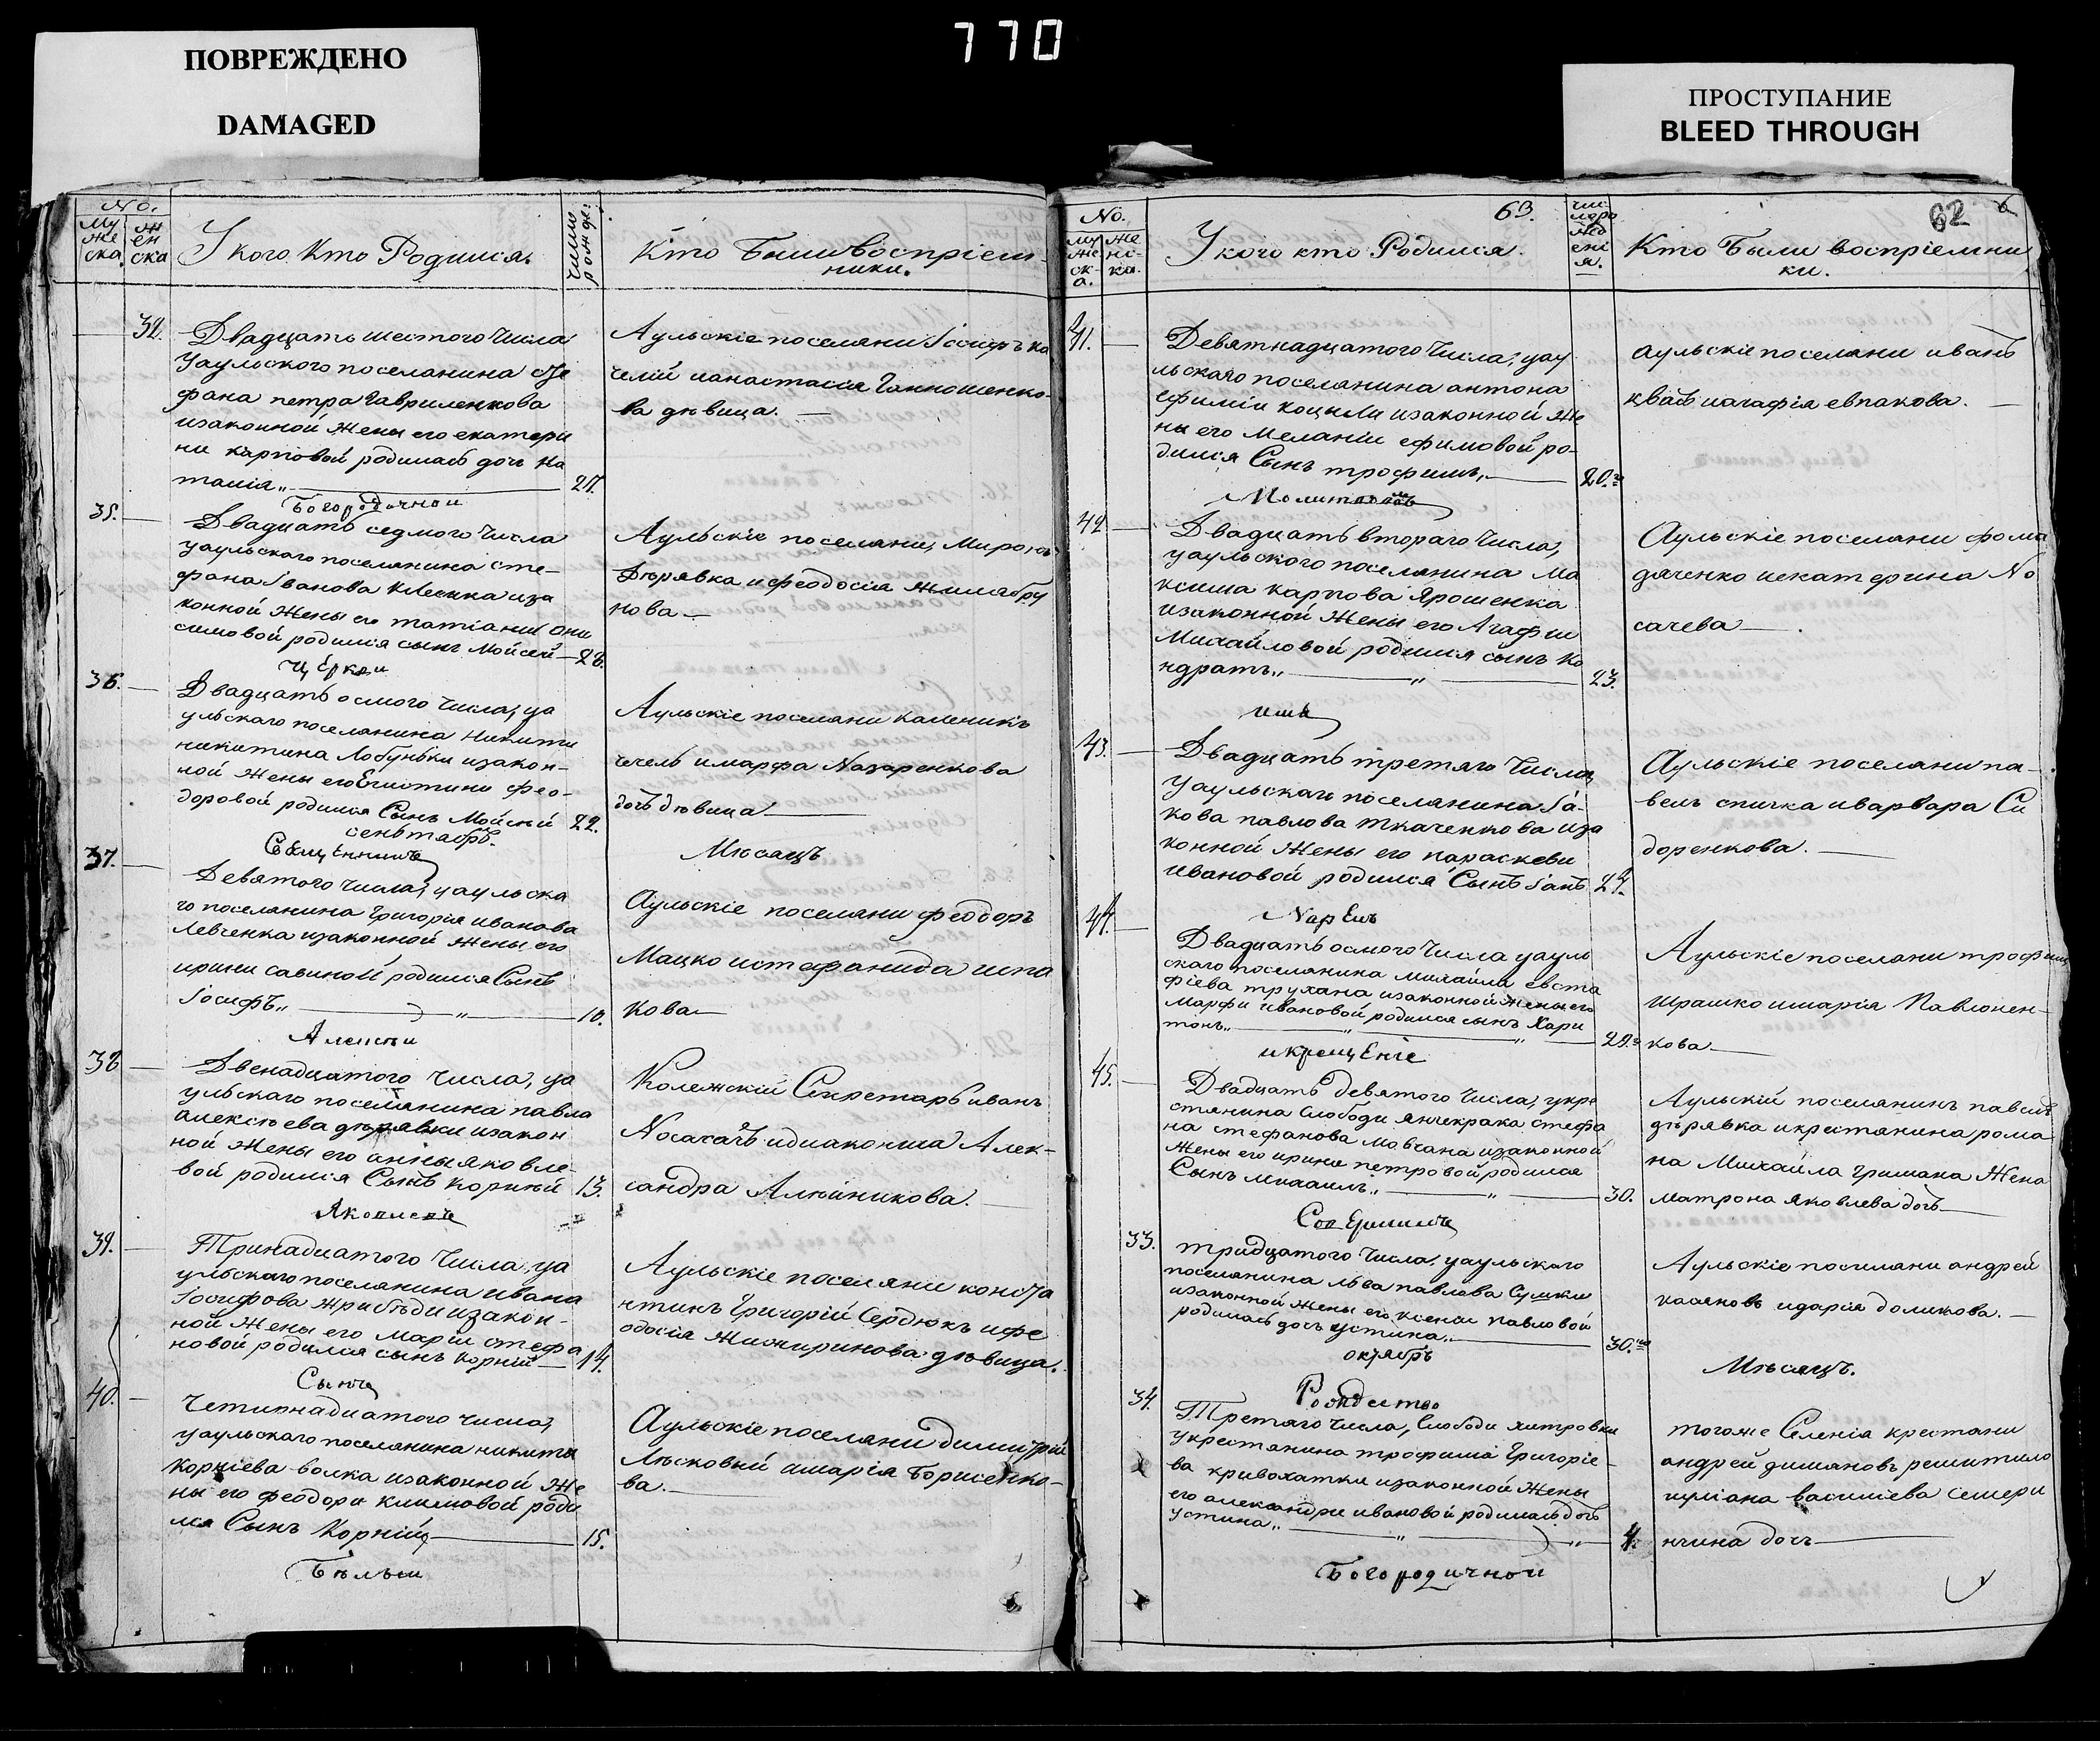 770
ПОВРЕЖДЕНО
DAMAGED
ПРОСТУПАНИЕ
BLEED THROUGH
No.
Му
же
ска.
Ж
ен
ска
У кого Кто Родился.
число
рожде:
Кто Были Воспріем-
ники.
32.
Двадцать шестого Числа
Уаульского поселянина сте
фана петра Гавриленкова
изаконной Жены его екатери
ни карповой родилась дочь На
талія„
27.
Аульскіе поселяни Іосифъ ка
челій ианастасія
ва дѣвица.
Богородичной
35.
Двадцать седмого Числа
уаульского поселянина сте-
фана Іванова изза
конной Жены его татіани они
симовой родился сынъ Мойсей
28.
Аульскіе поселяни, Миронъ
Дѣрявка иѳеодосіа
нова
Церкви
36.
Двадцать осмого Числа, уа
ульскаго поселянина Никити
никитина Лобуньки изакон-
ной Жены его Ѳео-
доровой родился Сынъ Мойсей
22.
Аульскіе поселяни каленикъ
чечель имарфа Назаренкова
дочь дѣвица
сентябрь.
Мѣсяцъ
Священникъ
37.
Девятого Числа, уаульска
го поселянина Григорія иванова
Левченка изаконной Жены его
ирини савиной родился Сынъ
Іосифъ„
10.
Аульскіе поселяни феодоръ
Мацко истефанида испа
кова
Алексѣи
38
Двенадцатого Числа, уа
ульскаго поселянина павла
алексѣева дѣрявки изакон
ной Жены его анны яковле-
вой родился Сынъ Корнѣй
13.
Колежскій Секретарь иванъ
Носачачъ идиаконша Алек-
сандра Алѣйникова.
Яковлевъ
39.
Тринадцатого Числа, уа
ульскаго поселянина ивана
Іосифова изакон-
ной Жены его Маріи стефа
новой родился сынъ Корній
14.
Аульскіе поселяни конста
нтинъ Григорій Сердюкъ ифе
одосія Жижиринова дѣвица.
Сынъ
40.
Четирнадцатого числа,
уаульскаго поселянина никиты
Корніева волка изаконной Же
ны его феодори климовой роди
лся Сынъ Корній
15.
Аульскіе поселяни димитрій
Лѣсковый имарія Борисенко-
ва.
Бѣлый
No.
му
же
ск-
а.
же
нс-
ка.
63.
У кого кто Родился.
чи-
сло ро
жд
ені
я.
62
Кто Были воспріемни
ки.
41.
Девятнадцатого Числа, уау
льскаго поселянина антона
ефиміи коцыли изаконной Же
ны его Меланіи ефимовой ро-
дился Сынъ трофимъ,
20.
аульскіе поселяни иванъ
цватъ иагафія евпакова.
42
Двадцать втораго Числа,
уаульского поселянина Ма
ксима карпова Ярошенка
изаконной Жены его Агафіи
Михайловой родился сынъ Ко
ндратъ„
23.
Аульскіе поселяни фома
дяченко иекатерина Но
сачева
имѣ
43.
Двадцать третяго Числа,
Уаульскаго поселянина Іа-
кова павлова ткаченкова иза
конной Жены его параскеви
ивановой родился Сынъ Іанъ
24.
Аульскіе поселяни па-
велъ спичка иварвара Си
доренкова.
Нареиъ
44.
Двадцать осмого Числа уауль
скаго поселянина михайла евста
фіева трухана изаконной Жены его
Марфи ивановой родился сынъ Хари
тонъ„
29.
Аульскіе поселяни трофимъ
Ирашко имарія Павлючен-
кова
икрещеніе
45.
Двадцать девятого Числа, укре
стянина слободи янчекрака стефа
на стефанова мовчана изаконной
Жены его ирини петровой родился
Сынъ Михаилъ„
30.
Аульскій поселянинъ павелъ
дѣрявка икрестянина рома
на Михайла Гримака Жена
матрона яковлева дочь
Совершилъ
33.
тридцатого Числа, уаульского
поселянина льва павлова Сушки
изаконной Жены его ксеніи павловой
родилась дочь устина„
30.
Аульскіе поселяни андрей
касяновъ идарія доликова.
октябрь
Мѣсяцъ.
Рождество
34.
Третяго Числа, Слободи хитровки
укрестянина трофима Григоріе-
ва кривохатки изаконной Жены
его александри ивановой родилась дочь
Устина„
4.
тогоже Селенія крестяни
андрей димяновъ решитило
иуліана василіева семери
нчина дочь
Богородичной